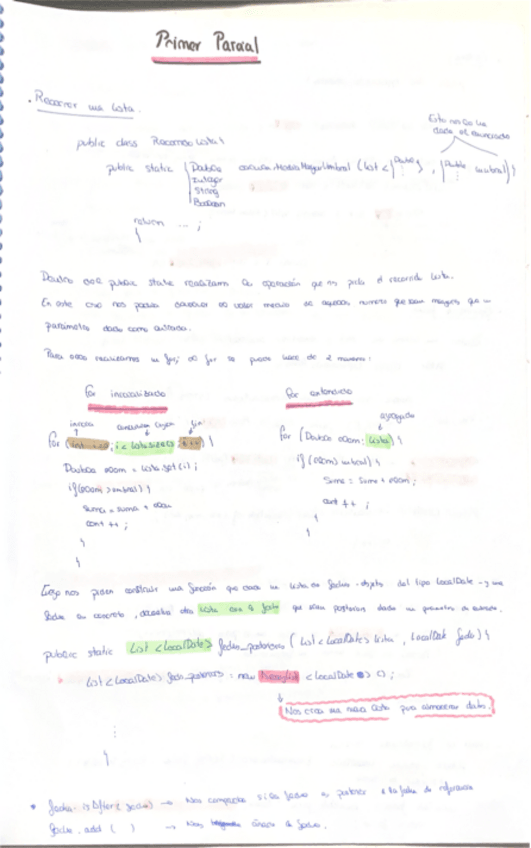 Primer Parcial
. Recorrer una lista.
Esto nos lo va
dado el enunciado
public class RecorridoLista {
public static Double calcularMediaMayorUmbral (List < Double > , Double umbral) {
Integer
String
Boolean
return ... ;
}
Dentro del public static realizamos la operación que nos pida el recorrido lista.
En este caso nos pedían calcular el valor medio de aquellos numeros que sean mayores que un
parámetro dado como entrada.
Para ello realizamos un for; el for se puede hacer de 2 maneras:
for inicializado
for extendido
inicio fin
agregado
for ( ; i < lista.size() ; i++) {
for (Double elem: lista) {
Double elem = lista.get(i);
if (elem > umbral) {
if(elem > umbral) {
suma = suma + elem;
suma = suma + elem
cont ++ ;
cont ++ ;
}
}
}
}
Luego nos piden construir una función que crea una lista de fechas - objetos del tipo LocalDate - y una
fecha en concreto, devuelva otra lista con la fecha que sean posteriores dado un parametro de entrada.
public static List <LocalDate> fechas_posteriores (List<LocalDate> lista , LocalDate fecha) {
List <LocalDate> fecha_posteriores = new <LocalDate> ();
Nos crea una nueva lista para almacenar datos.
}
* fecha.isAfter(fecha) → Nos comprueba si la fecha es posterior a la fecha de referencia
fecha.add ( ) → Nos añade la fecha.